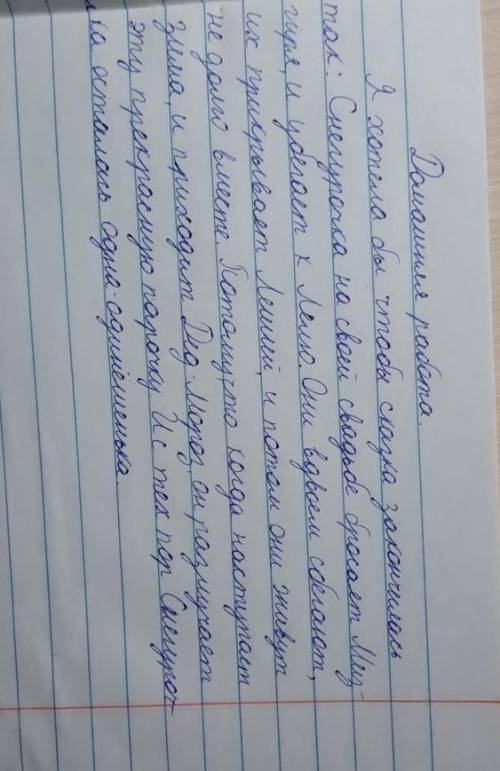 Домашняя работа.
Я хотела бы чтобы сказка закончилась
так: Снегурочка на своей свадьбе бросает Миз-
гиря, и убегает к Лелю. Они вдвоем сбегают,
их прикрывает Леший, и потом они живут
не долго вместе. Патамучто когда наступает
зима, и приходит Дед-Мороз, он разлучает
эту прекрасную парочку. И с тех пор Снегуроч-
ка осталась одна-одинёшенька.